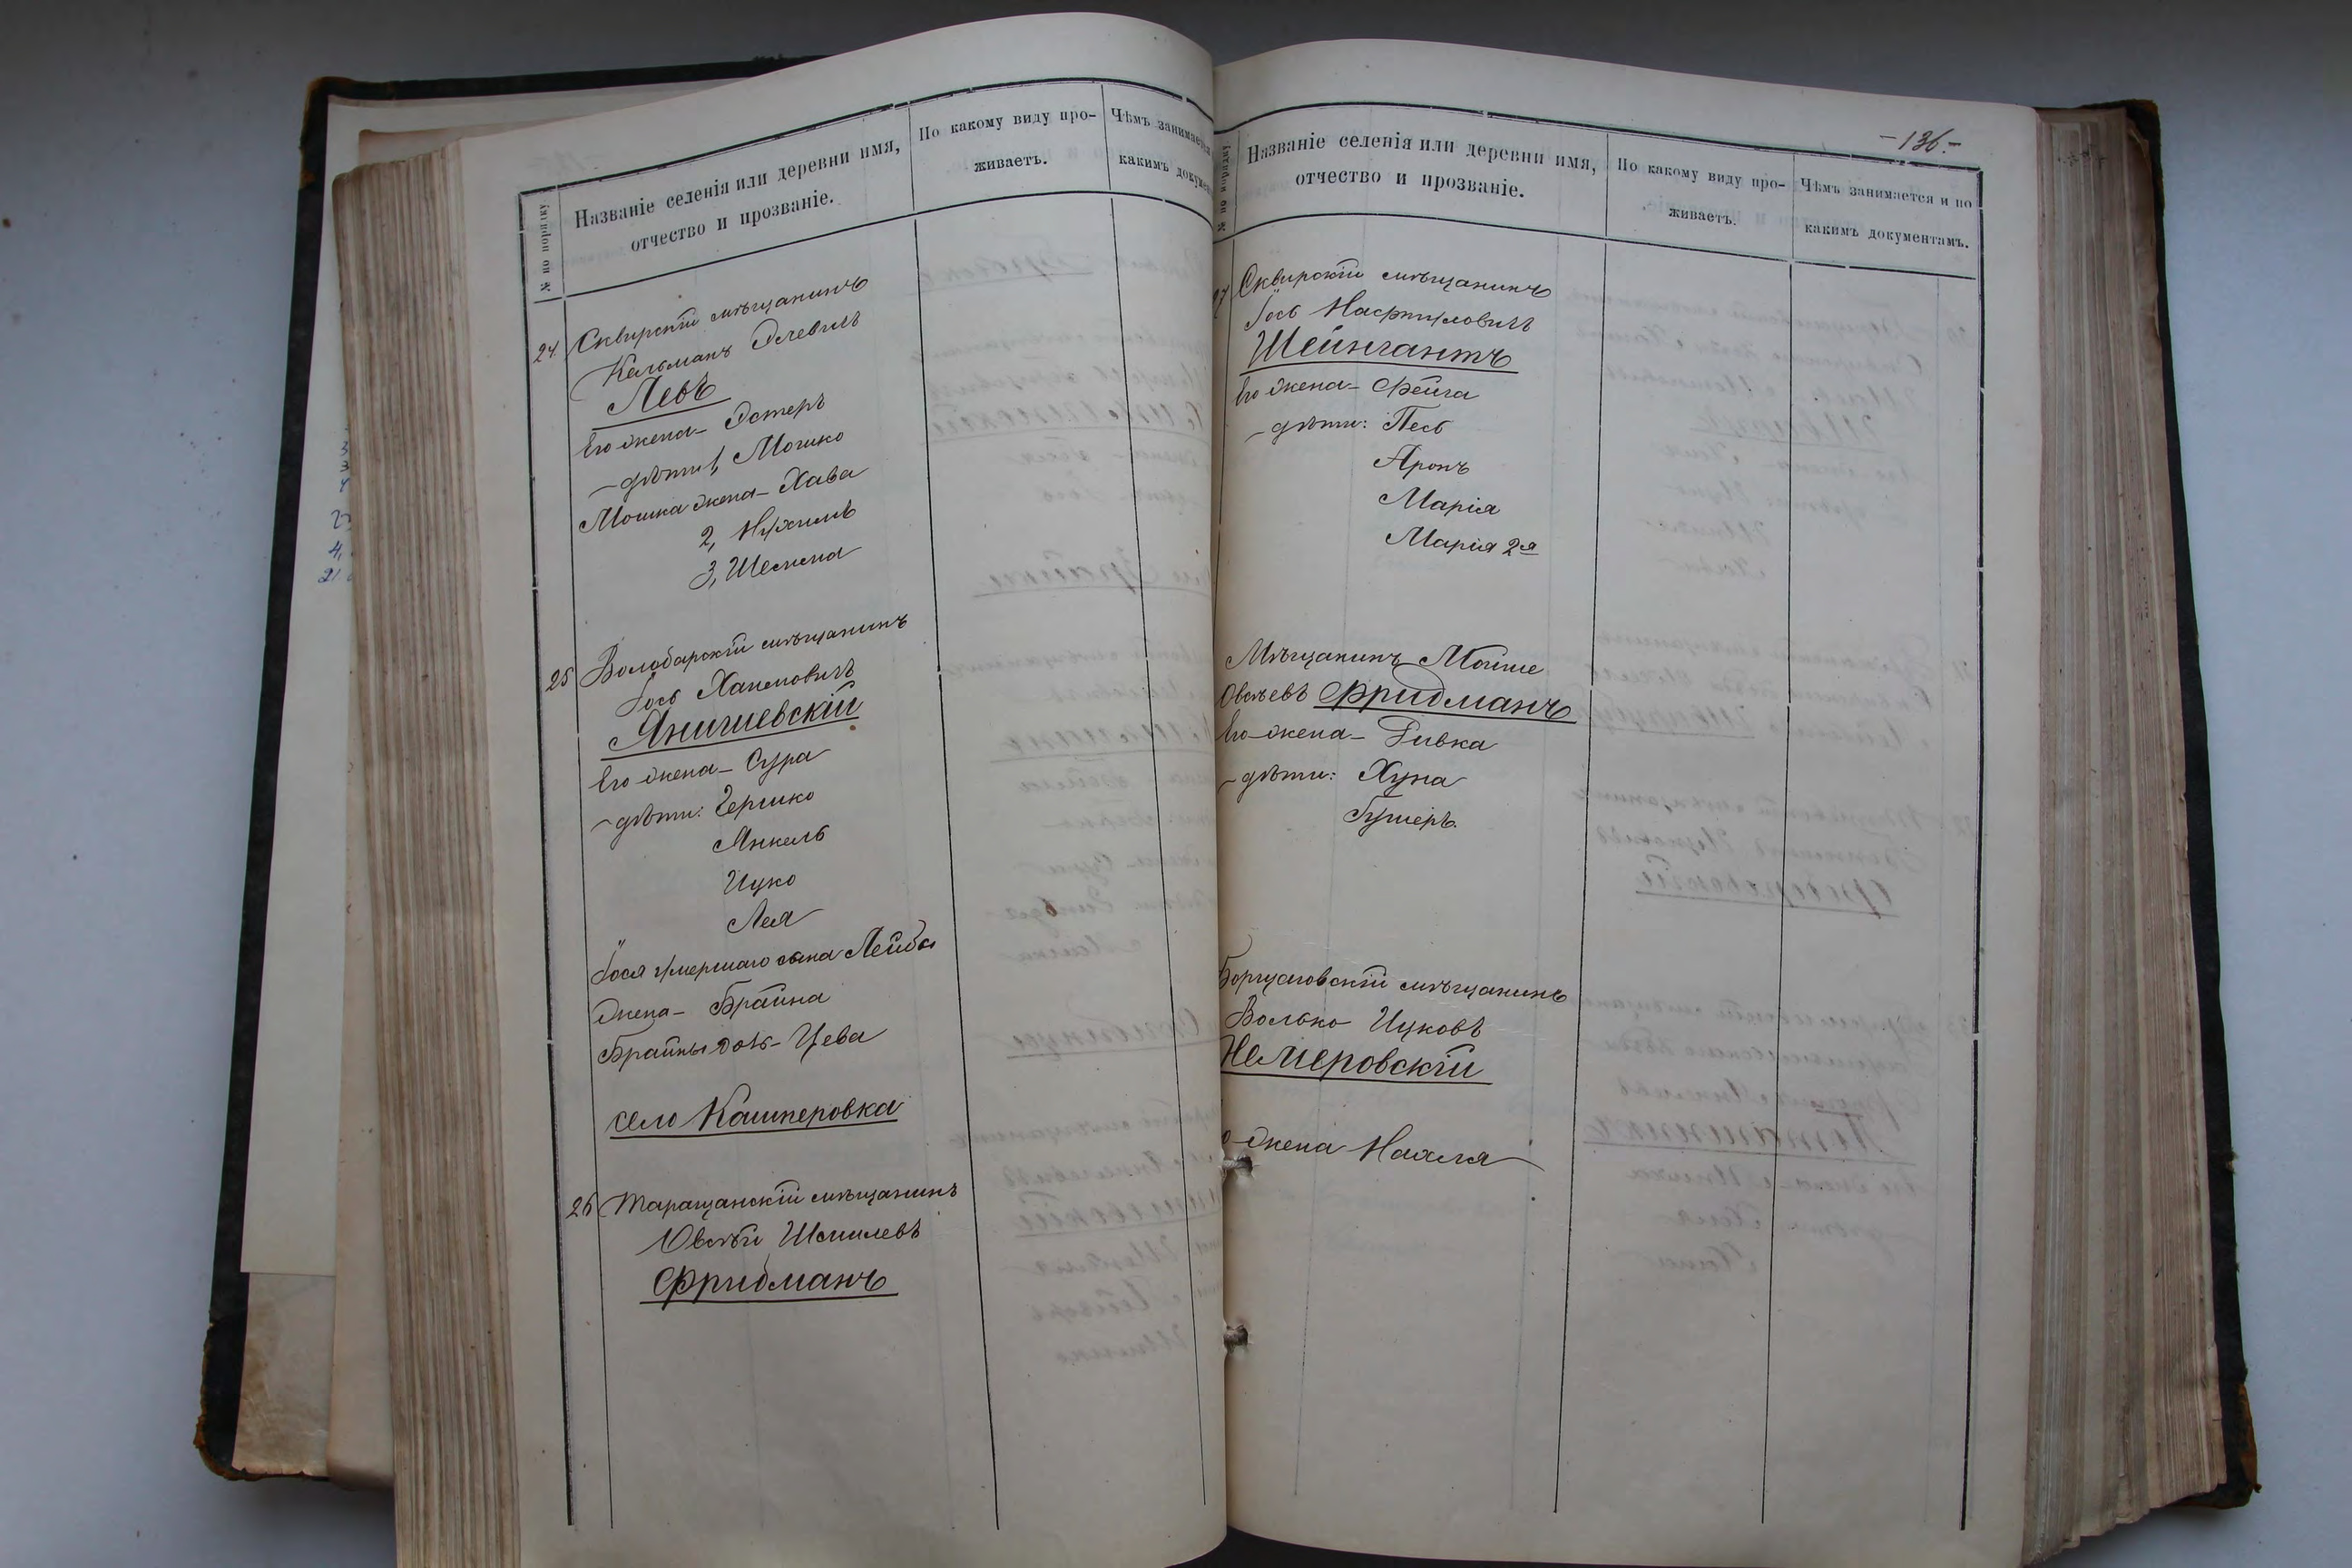 № по порядку
Названіе селенія или деревни имя,
отчество и прозваніе.
По какому виду про-
живаетъ.
Чѣмъ занимается
какимъ докумен
24 Сквирскій мѣщанинъ
Кальманъ Элевичъ
Левъ
Его жена – Эстеръ
– дѣти 1, Мошко
Мошка жена – Хава
2, Нухимъ
3, Шелема
25 Володарскій мѣщанинъ
Іось Хаимовичъ
Янишевскій
Его жена – Сура
– дѣти: Гершко
Янкель
Ицко
Лея
Іося умершаго сына Лейбы
жена – Брайна
Брайны дочь – Цева
село Кашперовка
26 Таращанскій мѣщанинъ
Овсѣй Шмилевъ
Фридманъ
– 136. –
№ по порядку
Названіе селенія или деревни имя,
отчество и прозваніе.
По какому виду про-
живаетъ.
Чѣмъ занимается и по
какимъ документамъ.
27 Сквирскій мѣщанинъ
Іось Насфтуловичъ
Шейнгантъ
Его жена – Фейга
– дѣти: Песь
Аронъ
Марія
Марія 2я
Мѣщанинъ Мойше
Овсѣевъ Фридманъ
Его жена – Ривка
– дѣти: Хуна
Гушеръ.
Борщаговскій мѣщанинъ
Волько Ицковъ
Немеровскій
о жена Нахля